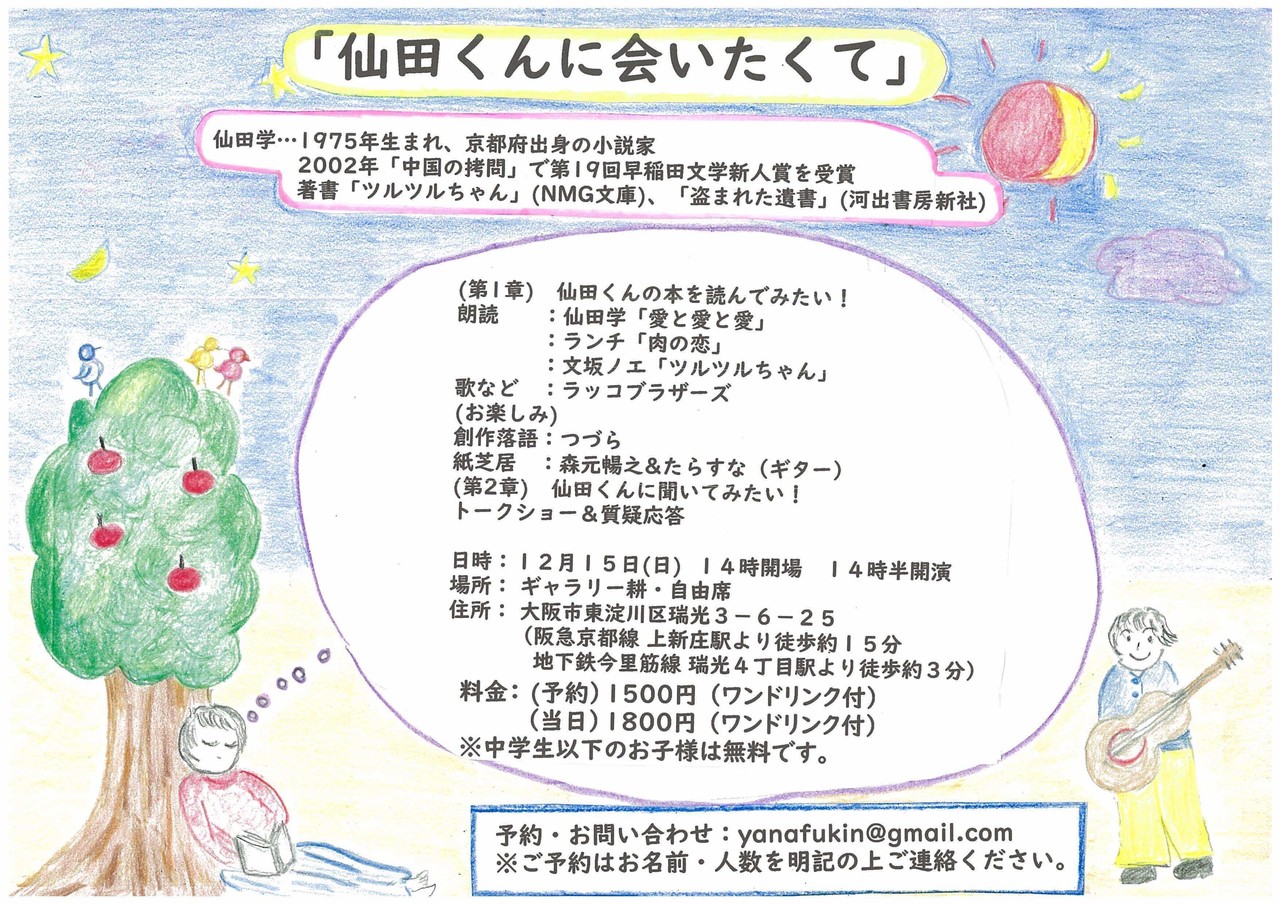 「仙田くんに会いたくて」
仙田学…1975年生まれ、京都府出身の小説家
2002年「中国の拷問」で第19回早稲田文学新人賞を受賞
著書「ツルツルちゃん」(NMG文庫)、「盗まれた遺書」(河出書房新社)
(第1章)　仙田くんの本を読んでみたい！
朗読　　：仙田学「愛と愛と愛」
：ランチ「肉の恋」
：文坂ノエ「ツルツルちゃん」
歌など　：ラッコブラザーズ
(お楽しみ)
創作落語：つづら
紙芝居　：森元暢之&たらすな（ギター）
(第2章)　仙田くんに聞いてみたい！
トークショー＆質疑応答
日時：１２月１５日(日)　１４時開場　１４時半開演
場所：ギャラリー耕・自由席
住所：大阪市東淀川区瑞光３－６－２５
（阪急京都線 上新庄駅より徒歩約１５分
地下鉄今里筋線 瑞光４丁目駅より徒歩約３分）
料金：（予約）1500円（ワンドリンク付）
（当日）1800円（ワンドリンク付）
※中学生以下のお子様は無料です。
予約・お問い合わせ：yanafukin@gmail.com
※ご予約はお名前・人数を明記の上ご連絡ください。